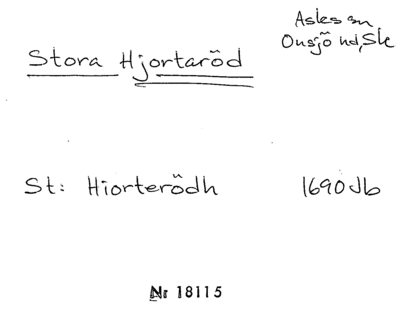 Askes sn
Onsjö hd, Sk
Stora Hjortaröd
St: Hiorterödh 1690 Jb
Nr 18115